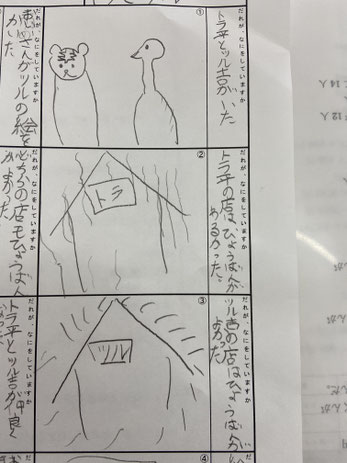 ①
だれが、なにをしていますか
トラ平とツル吉がいた
②
だれが、なにをしていますか
トラ平の店はひょうばんが
あるかった。
トラ
③
だれが、なにをしていますか
ツル吉の店はひょうばんが
よかった
ツル
④
だれが、なにをしていますか
さんがツルの絵を
かいた
だれが、なにをしていますか
どちらの店もひょうばん
がよかった
だれが、なにをしていますか
トラ平とツル吉が仲良く
14人
12人